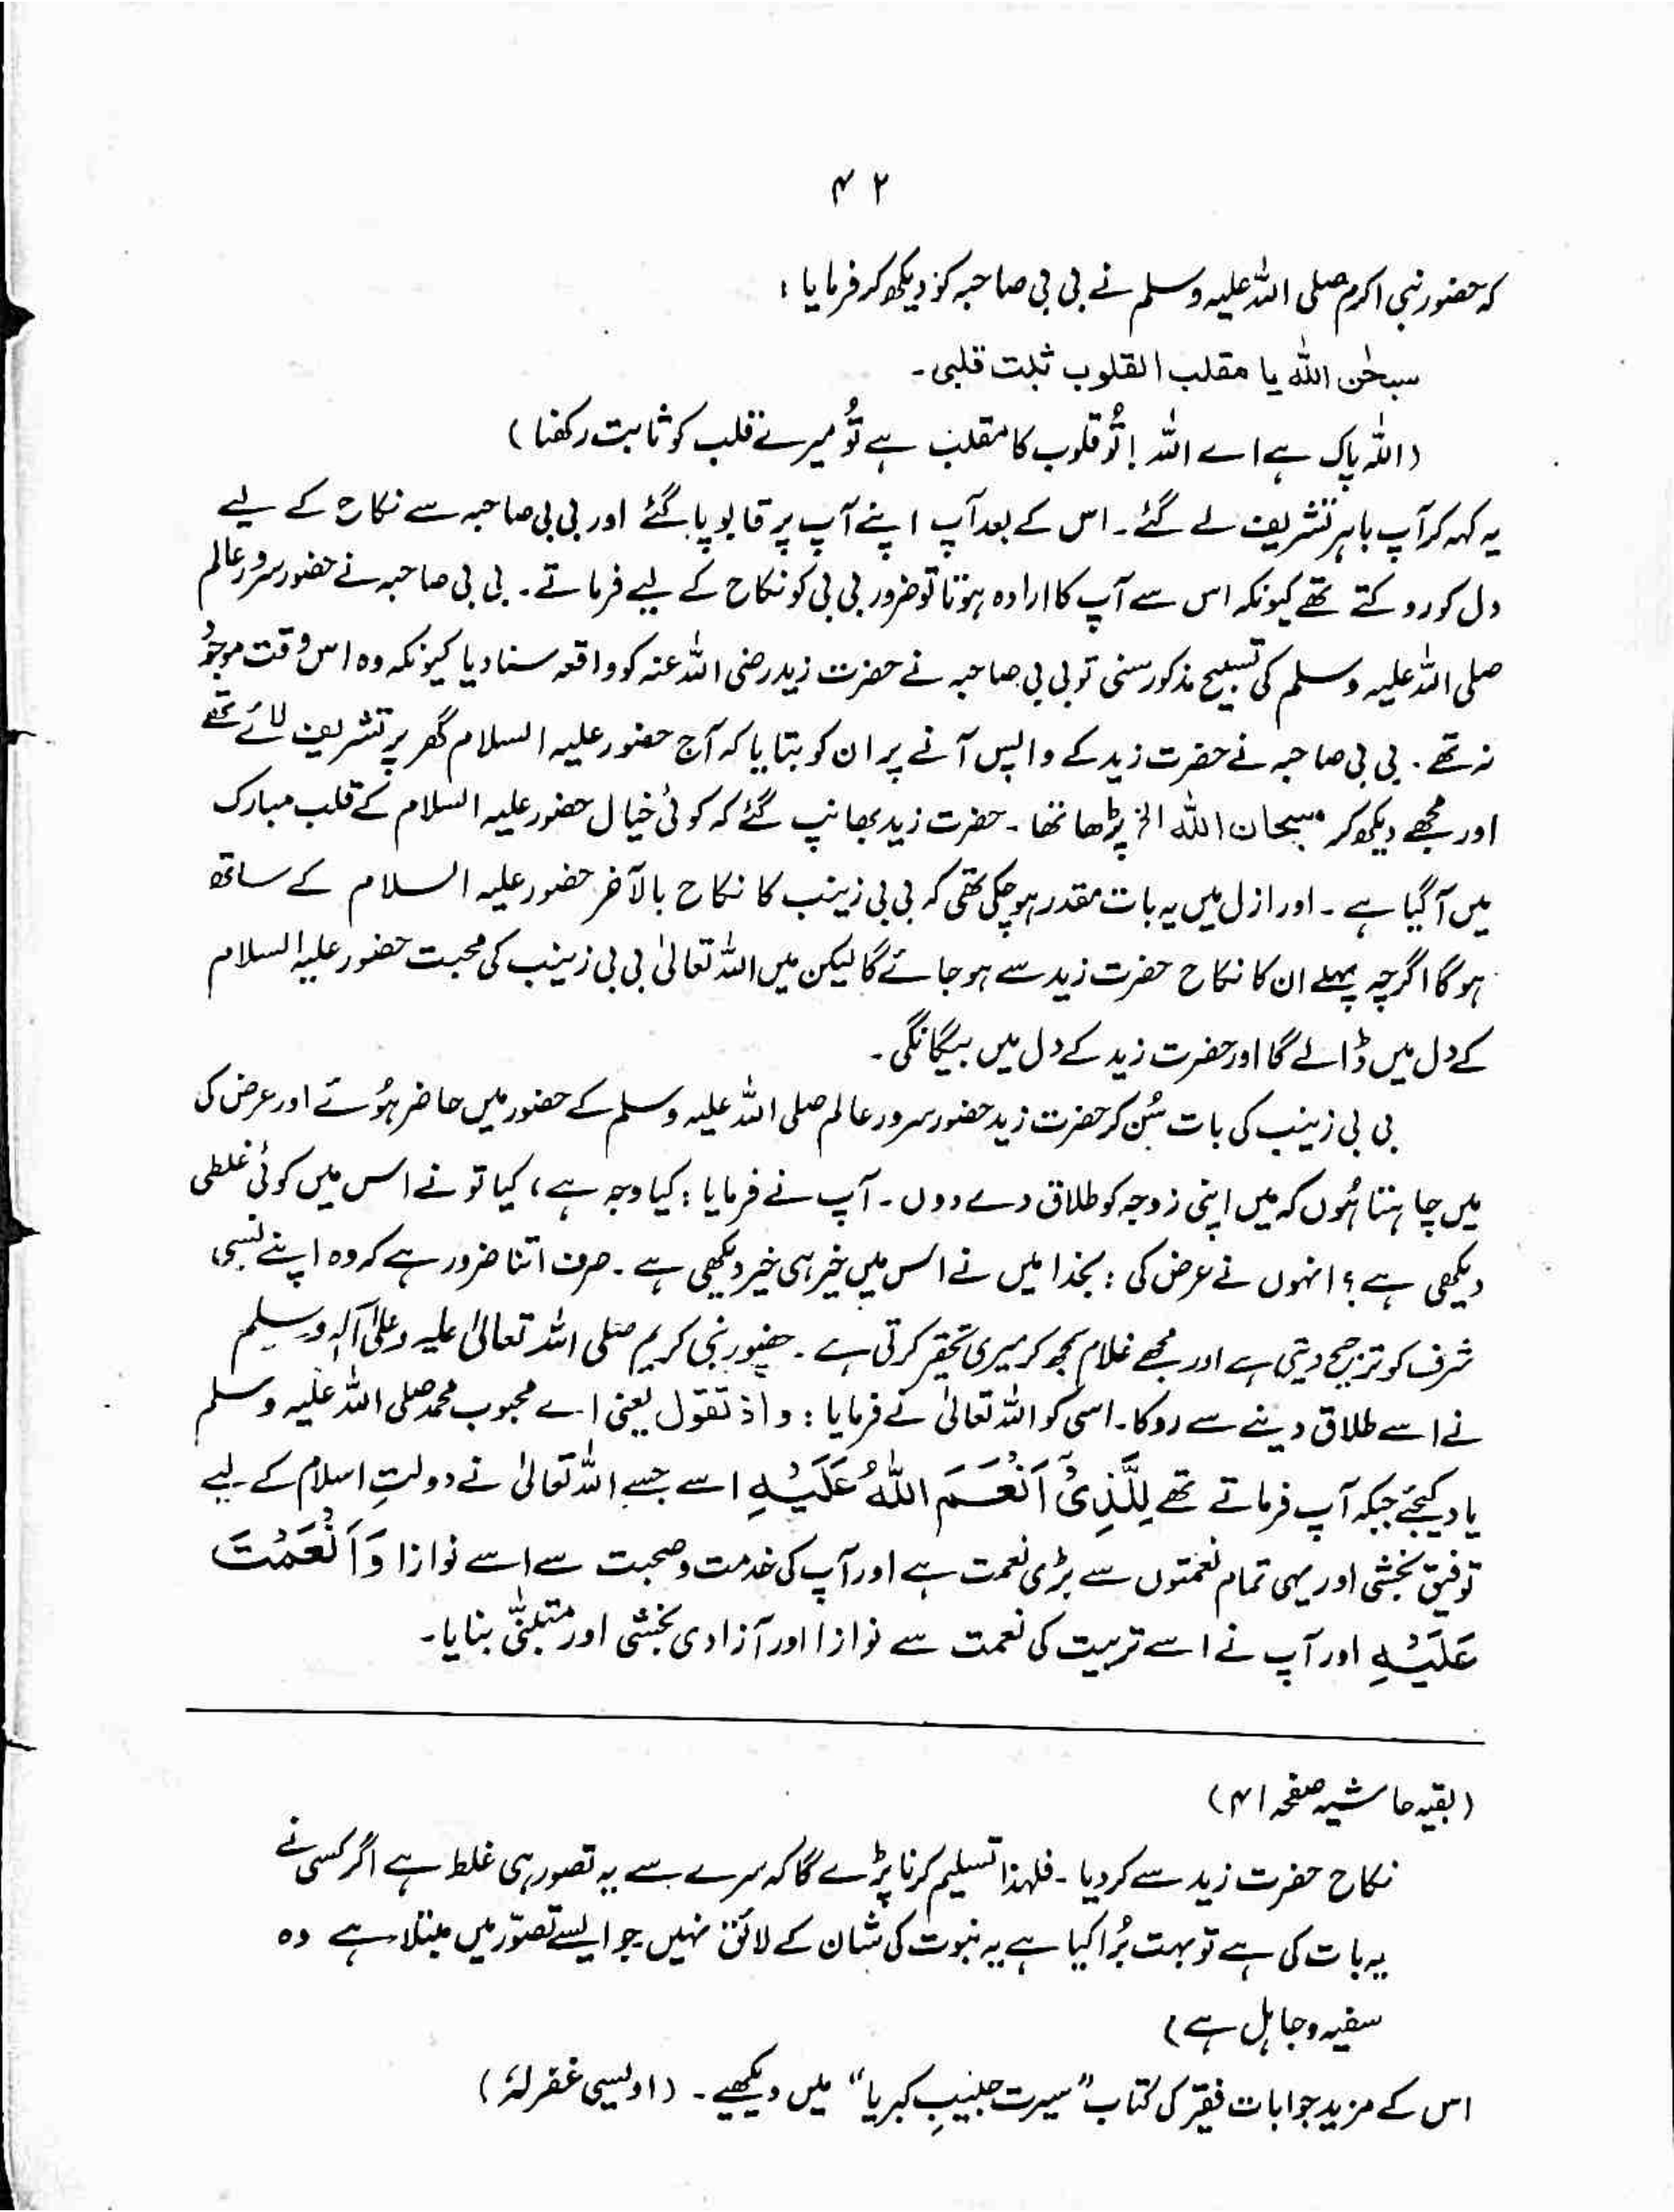 ۴۲
کہ حضور نبی اکرم صلی اللہ علیہ وسلم نے بی بی صاحبہ کو دیکھ کر فرمایا :
سبحٰن اللہ یا مقلب القلوب ثبت قلبی۔
(اللہ پاک ہے اے اللہ ! تُو قلوب کا مقلب ہے تُو میرے قلب کو ثابت رکھنا)
یہ کہہ کر آپ باہر تشریف لے گئے۔ اس کے بعد آپ اپنے آپ پر قابو پا گئے اور بی بی صاحبہ سے نکاح کے لیے
دل کو روکتے تھے کیونکہ اس سے آپ کا ارادہ ہوتا تو ضرور بی بی کو نکاح کے لیے فرماتے۔ بی بی صاحبہ نے حضور سرور عالم
صلی اللہ علیہ وسلم کی تسبیح مذکور سنی تو بی بی صاحبہ نے حضرت زید رضی اللہ عنہ کو واقعہ سنا دیا کیونکہ وہ اس وقت موجود
نہ تھے۔ بی بی صاحبہ نے حضرت زید کے واپس آنے پر ان کو بتایا کہ آج حضور علیہ السلام گھر پر تشریف لائے تھے
اور مجھے دیکھ کر سبحان اللہ الخ پڑھا تھا۔ حضرت زید بھانپ گئے کہ کوئی خیال حضور علیہ السلام کے قلب مبارک
میں آگیا ہے۔ اور ازل میں یہ بات مقدر ہو چکی تھی کہ بی بی زینب کا نکاح بالآخر حضور علیہ السلام کے ساتھ
ہو گا اگرچہ پہلے ان کا نکاح حضرت زید سے ہو جائے گا لیکن میں اللہ تعالیٰ بی بی زینب کی محبت حضور علیہ السلام
کے دل میں ڈالے گا اور حضرت زید کے دل میں بیگانگی۔
بی بی زینب کی بات سُن کر حضرت زید حضور سرور عالم صلی اللہ علیہ وسلم کے حضور میں حاضر ہُوئے اور عرض کی
میں چاہتا ہُوں کہ میں اپنی زوجہ کو طلاق دے دوں۔ آپ نے فرمایا : کیا وجہ ہے، کیا تو نے اس میں کوئی غلطی
دیکھی ہے؟ انہوں نے عرض کی : بخدا میں نے اس میں خیر ہی خیر دیکھی ہے۔ صرف اتنا ضرور ہے کہ وہ اپنے نسبی
شرف کو ترجیح دیتی ہے اور مجھے غلام سمجھ کر میری تحقیر کرتی ہے۔ حضور نبی کریم صلی اللہ تعالیٰ علیہ وعلیٰ آلہ وسلم
نے اسے طلاق دینے سے روکا۔ اسی کو اللہ تعالیٰ نے فرمایا : واذ تقول یعنی اے محبوب محمد صلی اللہ علیہ وسلم
یاد کیجئے جبکہ آپ فرماتے تھے لِلَّذِیْٓ اَنْعَمَ اللّٰہُ عَلَیْہِ اسے جسے اللہ تعالیٰ نے دولتِ اسلام کے لیے
توفیق بخشی اور یہی تمام نعمتوں سے بڑی نعمت ہے اور آپ کی خدمت و صحبت سے اسے نوازا وَاَنْعَمْتَ
عَلَیْہِ اور آپ نے اسے تربیت کی نعمت سے نوازا اور آزادی بخشی اور متبنّٰی بنایا۔
(بقیہ حاشیہ صفحہ ۴۱)
نکاح حضرت زید سے کر دیا۔ فلہذا تسلیم کرنا پڑے گا کہ سرے سے یہ تصور ہی غلط ہے اگر کسی نے
یہ بات کی ہے تو بہت بُرا کیا ہے یہ نبوت کی شان کے لائق نہیں جو ایسے تصوّر میں مبتلا ہے وہ
سفیہ و جاہل ہے)
اس کے مزید جوابات فقیر کی کتاب "سیرت حبیبِ کبریا" میں دیکھیے۔ (اویسی غفرلہٗ)